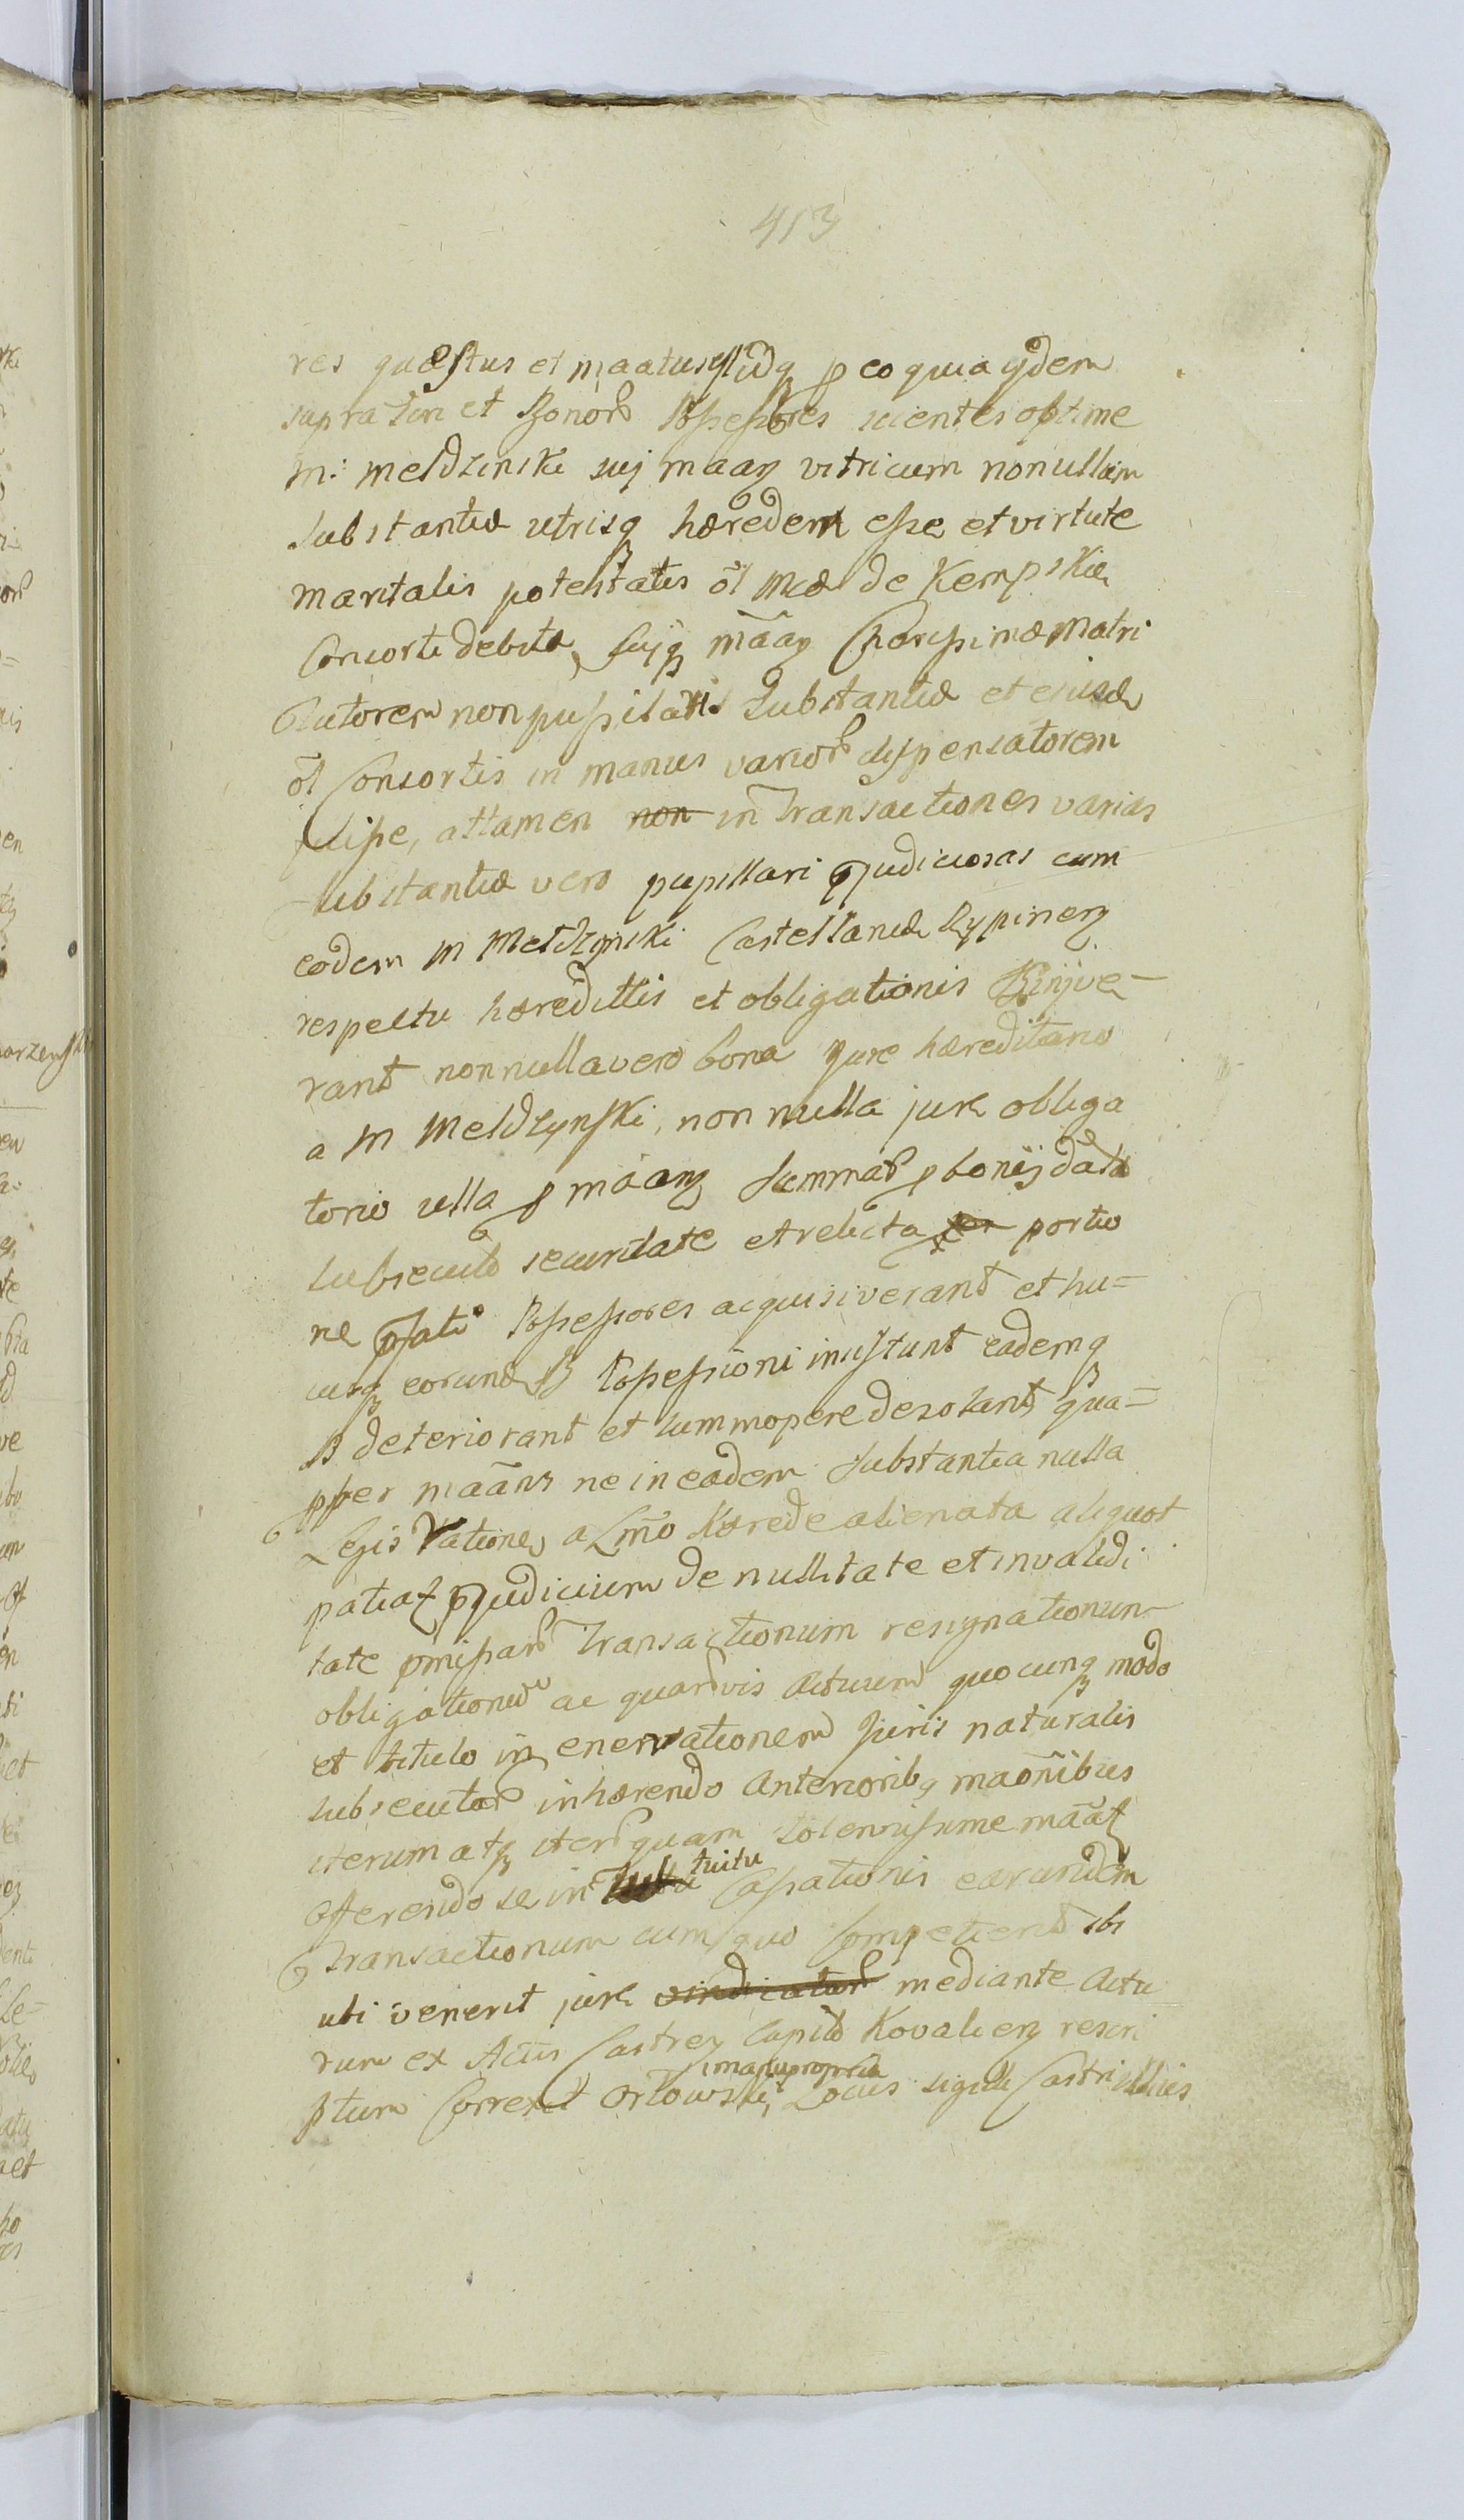 413
res quæstus et maatus eidq p eo quia ijdem
supra scri et Bonor Possessores scientes optime
M: Meldzinski suj maaz vitricum nonullam
substantiæ utrisq hæredem esse et virtute
maritalis potestatis ol Mcæ de Kempskie
Consorti debitæ, suijq mãaz Charissimæ Matri
Tutorem non pupillaris substantiæ et eiusd
ol Consortis in manus varior dispensatorem
fuisse, attamen non in Transactiones varias
substantiæ vero pupillari pjudiciosas cum
eodem M Meldzynski Castellanide Rypinen
respectu hæreditatis et obligationis inive-
rant nonnulla vero bona jure hæreditario
a M Meldzynski, non nulla jure obliga
torio ulla p mãanz summar p bonis data
subsecuto securitate et relicta portio
ne pfati Possessores acquisiverant et hu=
cusq eorund B Possessioni insistunt eademq
B deteriorant et summopere desolant qua=
ppter maãns ne in eadem substantia nulla
Legis ratione a Lmo Hærede alienata aliquot
patiat pjudicium de nullitate et invalidi
tate pmissar Transactionum resignationum
obligationu ac quarvis Actuum quocunq modo
et titulo in enervationem Juris naturalis
subsecutar inhærendo Anteriorib maõnibus
iterum atq iter quam solennissime maãt
offerendo se in tuitu Cassationis earundem
Transactionum cum quo competierit ibi
ubi venerit jure vindicatur mediante Actu
rum ex Actis Castren Capitl Kovalien rescri
ptum Correxit Orłowski, manu propria Locus sigilli Castri illius